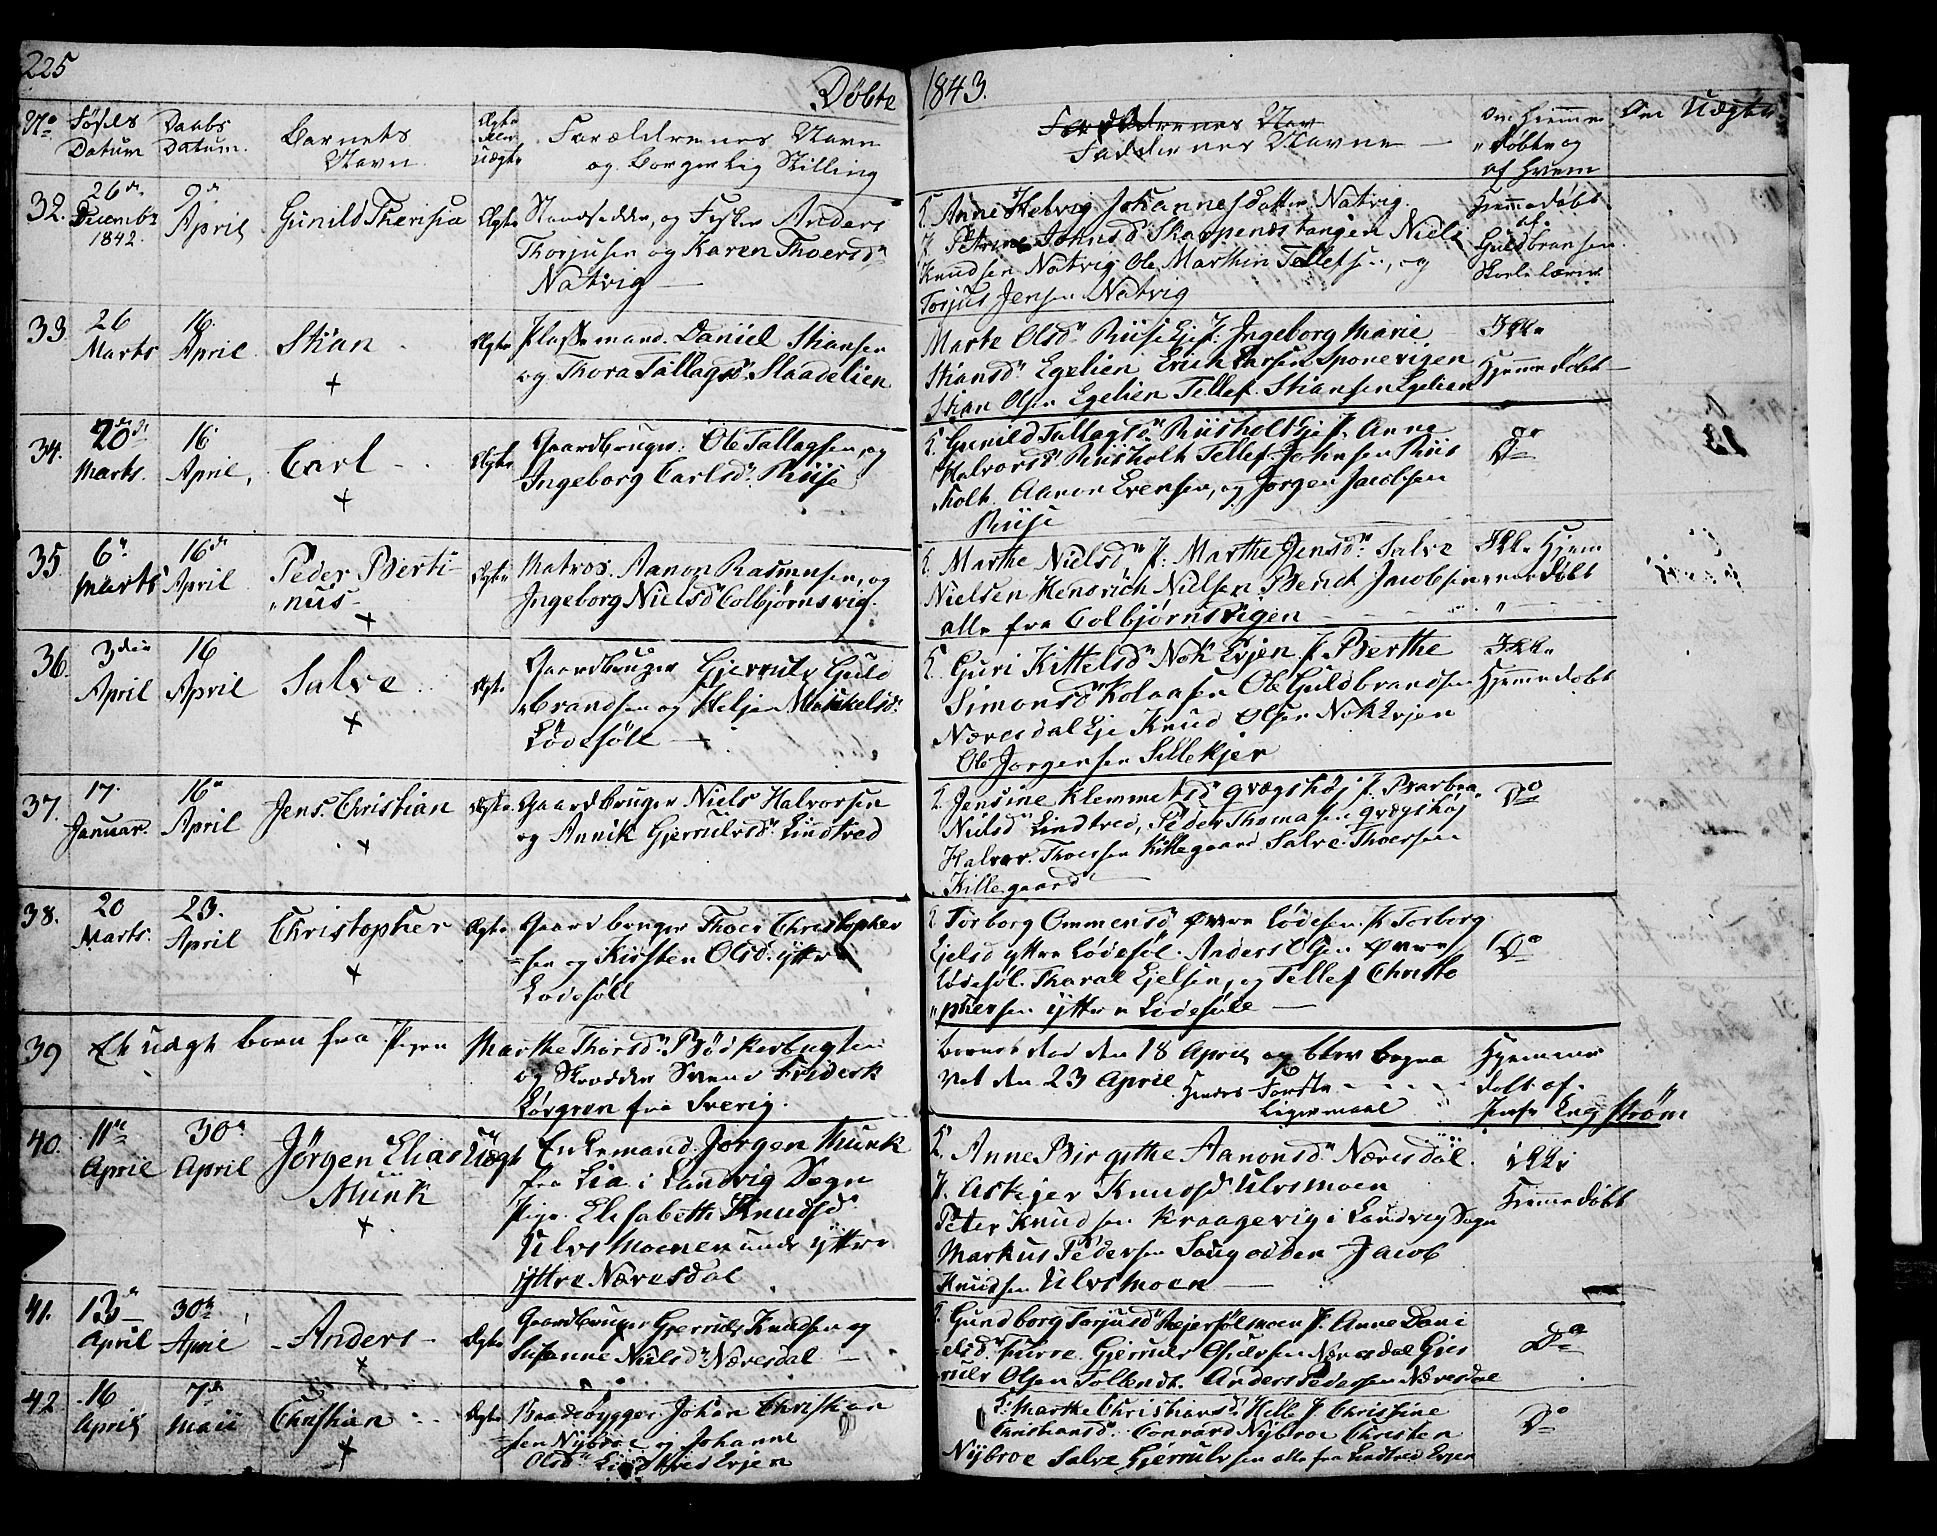 225
Døbte
1843.
No
Føsels
Datum
Daabs
Datum.
Barnets
Navn.
Ægte
eller
uægte
Forældrenes Navn
og Borgerlig Stilling
Faddernes Navne
Om Hjemme
døbte og
af Hvem
Om Uægte
32.
26de
Decembr
1842.
9de
April
Gunild Therisia
Ægte
og Fisker Anders
Thorjusen og Karen Thoersdr
Natvig
F. Anne Hedvig Johannesdatter Natvig.
P. Petrine Johnsdr Skarpenestangen Niels
Knudsen Natvig Ole Marthin Tellefsen, og
Torjus Jensen Natvig
Hjemmedøbt
af
Guldbransen
Skolelærer
33
26
Marts
16
April
Stian
+
Ægte
Pladsemand. Daniel Stiansen
og Thora Tallagsdr. Staadelien
Marte Olsdr Riise Eje P. Ingeborg Marie
Stiansdr Egelien Erich Larsen Sponevigen
Stian Olsen Egelien Tellef Stiansen Egelien
Ikke
Hjemmedøbt
34.
20de
Marts.
16
April,
Carl
+
Ægte
Gaardbruger. Ole Tallagsen, og
Ingeborg Carlsdr. Riise
F. Gunild Tallagsdr Riisholt Eje P. Anne
Halvorsdr Riisholt Tellef Johnsen Riis
holt. Aanon Evensen, og Jørgen Jacobsen
Riise
Do
35
6te
Marts
16de
April
Peder Berti-
nus
+
Ægte
Matros. Aanon Rasmusen, og
Ingeborg Nielsdr Colbjørnsvig.
F. Marthe Nielsdr, P. Marthe Jensdr. Salve
Nielsen Hendrich Nielsen Bendt Jacobsen
alle fra Colbjørnsvigen
Ikke Hjem
medøbt
36.
3die
April
16
April
Salve
+
Ægte
Gaardbruger Gjerrulv Guld
brandsen og Helje Mikkelsdr.
Lødesøll
F. Guri Kittelsdr Nok Evjen P. Berthe
Simonsdr Kolaasen Ole Guldbrandsen
Næresdal Eje Knud Olsen Nok Evjen
Ole Jørgensen Sellekjer
Ikke
Hjemmedøbt
37.
17.
Januar.
16de
April
Jens. Christian
+
Ægte
Gaardbruger Niels Halvorsen
og Annik Gjerrulvsdr. Lindtved
F. Jensine Klemmetsdr Grægshøj P. Barbra
Nielsdr Lindtved, Peder Thomasen Grægshøj
Halvor Thoersen Killegaard. Salve. Thoersen
Killegaard
Do
38.
20
Marts.
23.
April
Christopher
+
Ægte
Gaardbruger Thoer Christopher
sen og Kirsten Olsdr. yttre
Lødesøll
F. Torborg Ommensdr Øvre Lødesøl. P. Torberg
Ejelsd yttre Lødesøl. Anders Olsen Øvre
Lødesøl. Tharal Ejelsen, og Tellef Christo
phersen yttre Lødesøle
Do
39
Et uægt barn fra Pigen
Marthe Thorsdr. Bödkerbugten
og Skrædder Svend Friderik
Lövgren fra Sverig.
barnet død den 18 April og blev begra
vet den 23 April
Hendes Første
Ligermaal
Hjemme
døbt af.
Jens Engstrøm
40.
11te
April
30te
April
Jörgen Elias
Munk
+
Uægt
Enkemand. Jørgen Munk
fra Lia i Landvig Sogn
Pige. Elisabeth Knudsdr
Ulvsmoenen under yttre
yttre Næresdal
F. Anne Birgithe Aanonsdr. Næresdal.
P. Askejer Knudsdr Ulvsmoen
Peter Knudsen Kraagevig i Landvig Sogn
Markus Pedersen Saugodden Jacob
Knudsen Ulvsmoen
ikke
Hjemmedøbt
41.
13
April
30te
April
Anders
+
Ægte
Gaardbruger Gjerrulv Knudsen og
Susanne Nielsdr. Næresdal
F. Gundborg Torjusdr Rejersølmoen P. Anne Dani
elsdr. Furre. Gjerrulv Osulvsen Næresdal Gjer
rulv Olsen Tollendt. Anders Pedersen Næresdal
Do
42
16
April
7de
Maii
Christian
+
Ægte
Baadebygger Johan Christian
sen Nybroe og Johanne
Olsdr Lindtved Evjen
F. Marthe Christiansdr. Helle P. Christine
Christiansdr. Conrard Nybroe Christen
Nybroe Salve Gjerrulvsen alle fra Lindtved Evjen
Do